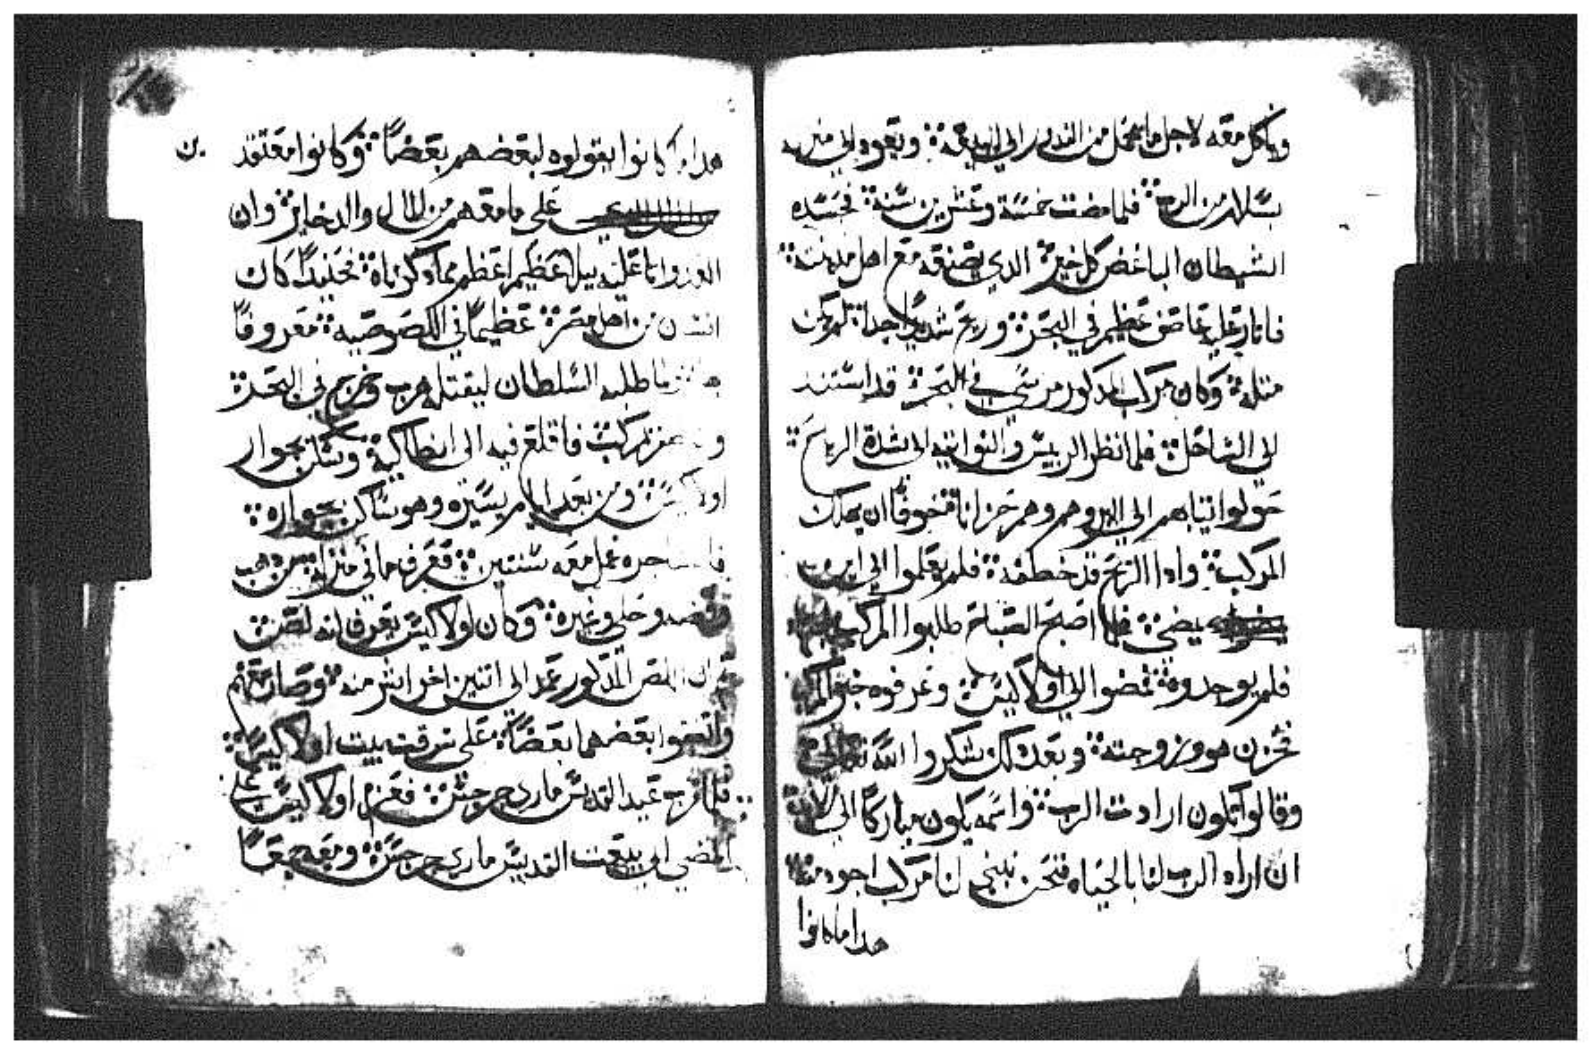 وياكل معه لاجل ما يحمل من الندور الي البيعة ويعود الي منزله
بسلام من الرب فلما مضت خمسة وعشرين سنة فحسده
الشيطان الباغض كل خير الدي يصنعه مع اهل مدينته
فاتار عليه عاصف عظيم في البحر وريح شديد جدا لم يكن
متله وكان مركب المدكور مرسي في البحر قد استند
الي الساحل فلما نظر الرييس والنواتيه الي شدة الرياح
حولوا تيابهم الي البر وهم حزانا خوفا ان يهلك
المركب وادا الريح قد خطفه فلم يعلموا الي اين
يمضي فلما اصبح الصباح طلبوا المركب
فلم يوجدوه فمضوا الي اولاكيس وعرفوه خبر المركب
فحزن هو وزوجته وبعد دلك شكروا الله تعالي
وقالوا تكون ارادت الرب واسمه يكون مباركا الي الابد
ان اراد الرب لنا بالحياه فنحن نبني لنا مركب اجود منها
هدا ما كانوا
هدا ما كانوا يقولوه لبعضهم بعضا وكانوا معتقد
علي ما معهم من المال والدخاير وان
العدو اتا عليه ببلا عظيم اعظم مما دكرناه فحينيدا كان
انسان من اهل مصر عظيما في اللصوصيه معروفا
طلبه السلطان ليقتله هرب وخرج في البحر
مركب فاقلع فيه الي انطاكية وسكن بجوار
اولاكيس ومن بعد ايام يسيره وهو ساكن بجواره
عمل معه سنتين فعرف ما في منزله من دهب
وفضه وحلي وغيره وكان اولاكيس يعرف انه لص
تم ان اللص المدكور عمد الي اتنين اخر اشر منه وصادقهم
واتفقوا بعضهما بعضا علي سرقت بيت اولاكيس
فلما قرب عيد القديس ماري جرجس فعزم اولاكيس علي
المضي الي بيعت القديس ماري جرجس ومعه جمعا